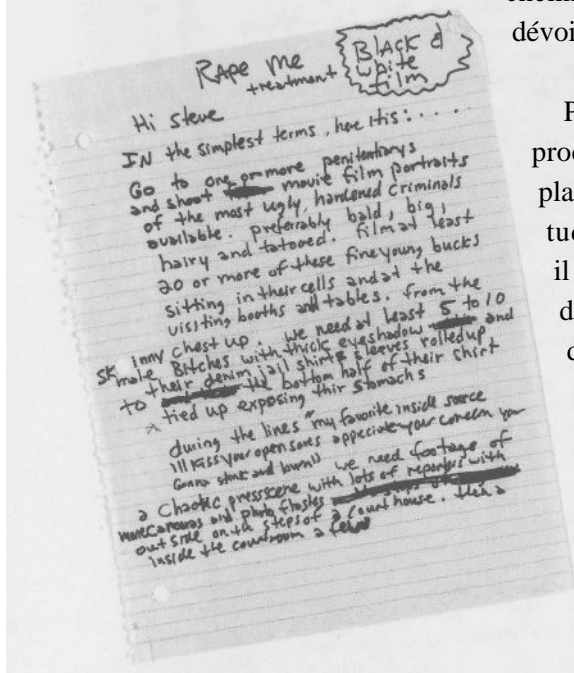 Rape Me
treatment
BLACK &
white
film
Hi steve
IN the simplest terms, here itis: . . . .
Go to one or more penitentiarys
and shoot movie film portraits
of the most ugly, hardened criminals
available. preferrably bald, big,
hairy and tatooed. film at least
20 or more of these fine young bucks
sitting in their cells and at the
visiting booths and tables. from the
chest up. we need at least 5 to 10
skinny male Bitches with thick eyeshadow and
their denim jail shirts sleeves rolledup
to the bottom half of their shirt
tied up exposing thir stomachs
during the lines "my favorite inside source
Ill kiss your open sores appreciate your concern your
Gonna stink and burn"
we need footage of
a chaotic pressscene with lots of reporters with
movie cameras and photo flashes
outside on the steps of a court house. then a
inside the courtroom a few
dévoi
P
pla
il
d